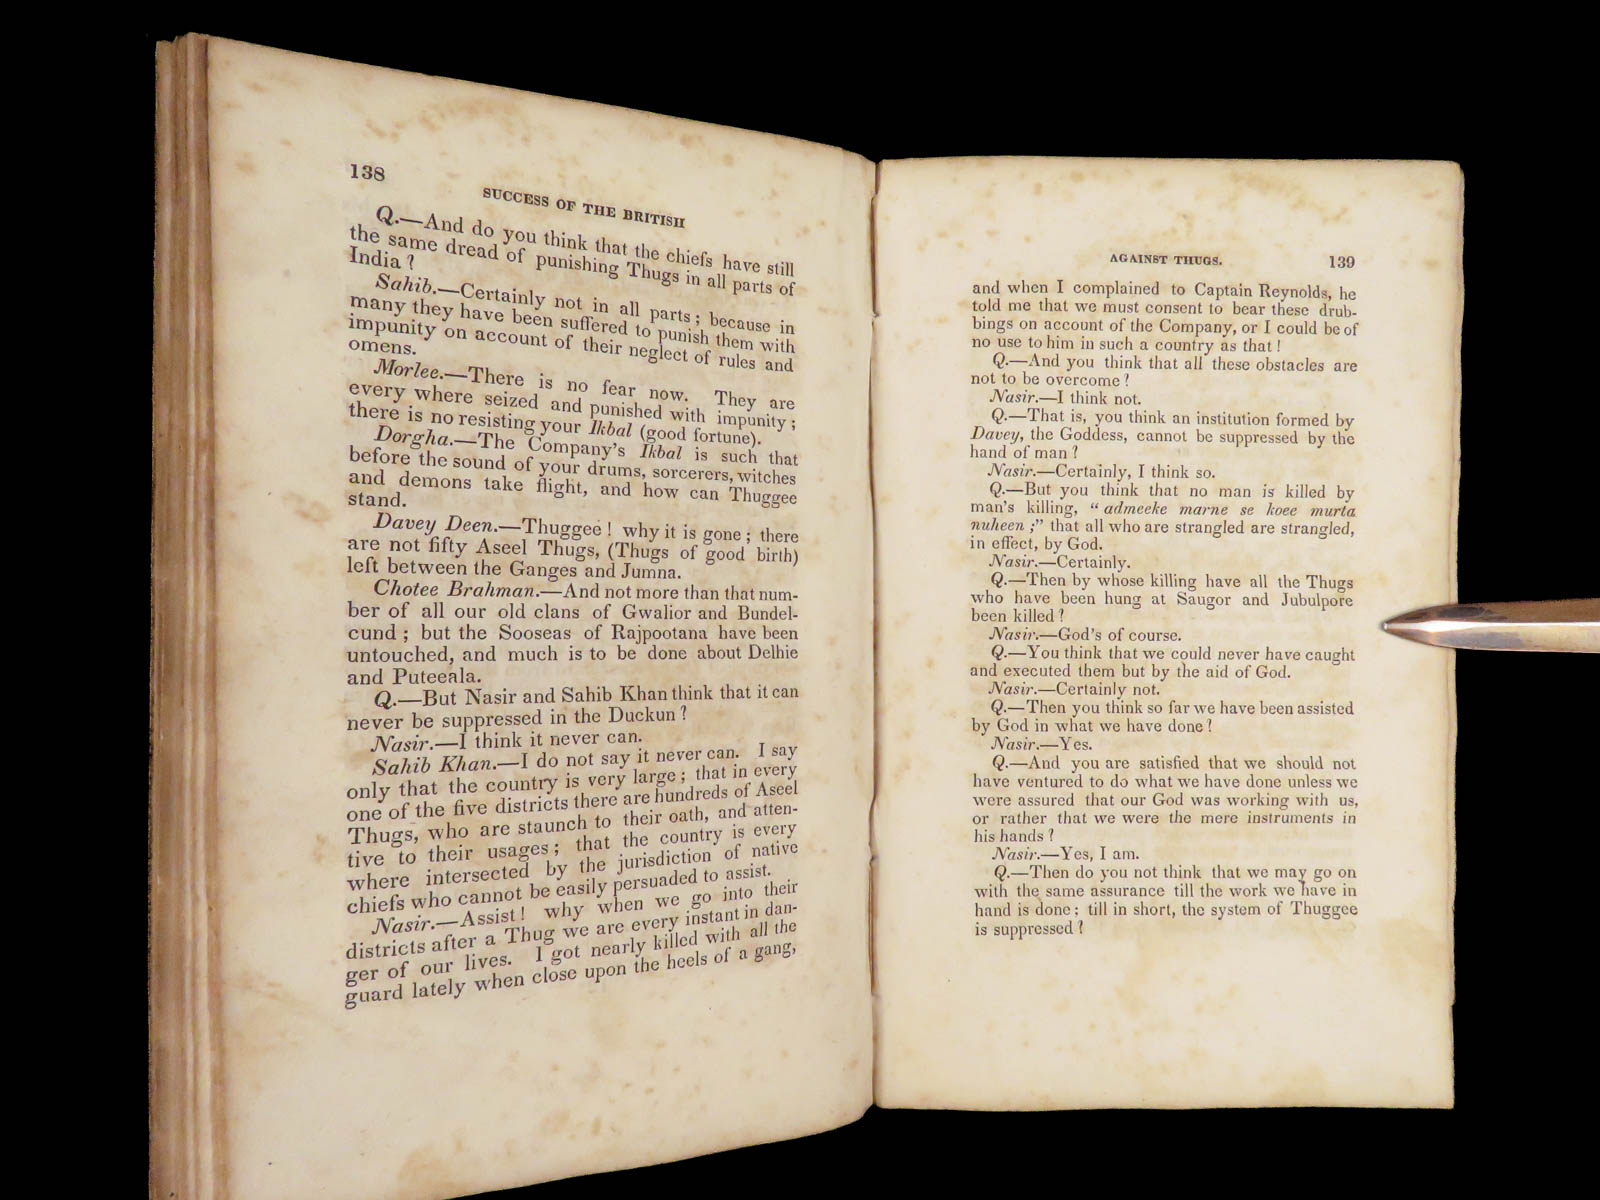 138
SUCCESS OF THE BRITISH
Q.—And do you think that the chiefs have still
the same dread of punishing Thugs in all parts of
India?
Sahib.—Certainly not in all parts; because in
many they have been suffered to punish them with
impunity on account of their neglect of rules and
omens.
Morlee.—There is no fear now. They are
every where seized and punished with impunity;
there is no resisting your Ikbal (good fortune).
Dorgha.—The Company's Ikbal is such that
before the sound of your drums, sorcerers, witches
and demons take flight, and how can Thuggee
stand.
Davey Deen.—Thuggee! why it is gone; there
are not fifty Aseel Thugs, (Thugs of good birth)
left between the Ganges and Jumna.
Chotee Brahman.—And not more than that num-
ber of all our old clans of Gwalior and Bundel-
cund; but the Sooseas of Rajpootana have been
untouched, and much is to be done about Delhie
and Puteeala.
Q.—But Nasir and Sahib Khan think that it can
never be suppressed in the Duckun?
Nasir.—I think it never can.
Sahib Khan.—I do not say it never can. I say
only that the country is very large; that in every
one of the five districts there are hundreds of Aseel
Thugs, who are staunch to their oath, and atten-
tive to their usages; that the country is every
where intersected by the jurisdiction of native
chiefs who cannot be easily persuaded to assist.
Nasir.—Assist! why when we go into their
districts after a Thug we are every instant in dan-
ger of our lives. I got nearly killed with all the
guard lately when close upon the heels of a gang,
AGAINST THUGS.
139
and when I complained to Captain Reynolds, he
told me that we must consent to bear these drub-
bings on account of the Company, or I could be of
no use to him in such a country as that!
Q.—And you think that all these obstacles are
not to be overcome?
Nasir.—I think not.
Q.—That is, you think an institution formed by
Davey, the Goddess, cannot be suppressed by the
hand of man?
Nasir.—Certainly, I think so.
Q.—But you think that no man is killed by
man's killing, "admeeke marne se koee murta
nuheen;" that all who are strangled are strangled,
in effect, by God.
Nasir.—Certainly.
Q.—Then by whose killing have all the Thugs
who have been hung at Saugor and Jubulpore
been killed?
Nasir.—God's of course.
Q.—You think that we could never have caught
and executed them but by the aid of God.
Nasir.—Certainly not.
Q.—Then you think so far we have been assisted
by God in what we have done?
Nasir.—Yes.
Q.—And you are satisfied that we should not
have ventured to do what we have done unless we
were assured that our God was working with us,
or rather that we were the mere instruments in
his hands?
Nasir.—Yes, I am.
Q.—Then do you not think that we may go on
with the same assurance till the work we have in
hand is done; till in short, the system of Thuggee
is suppressed?